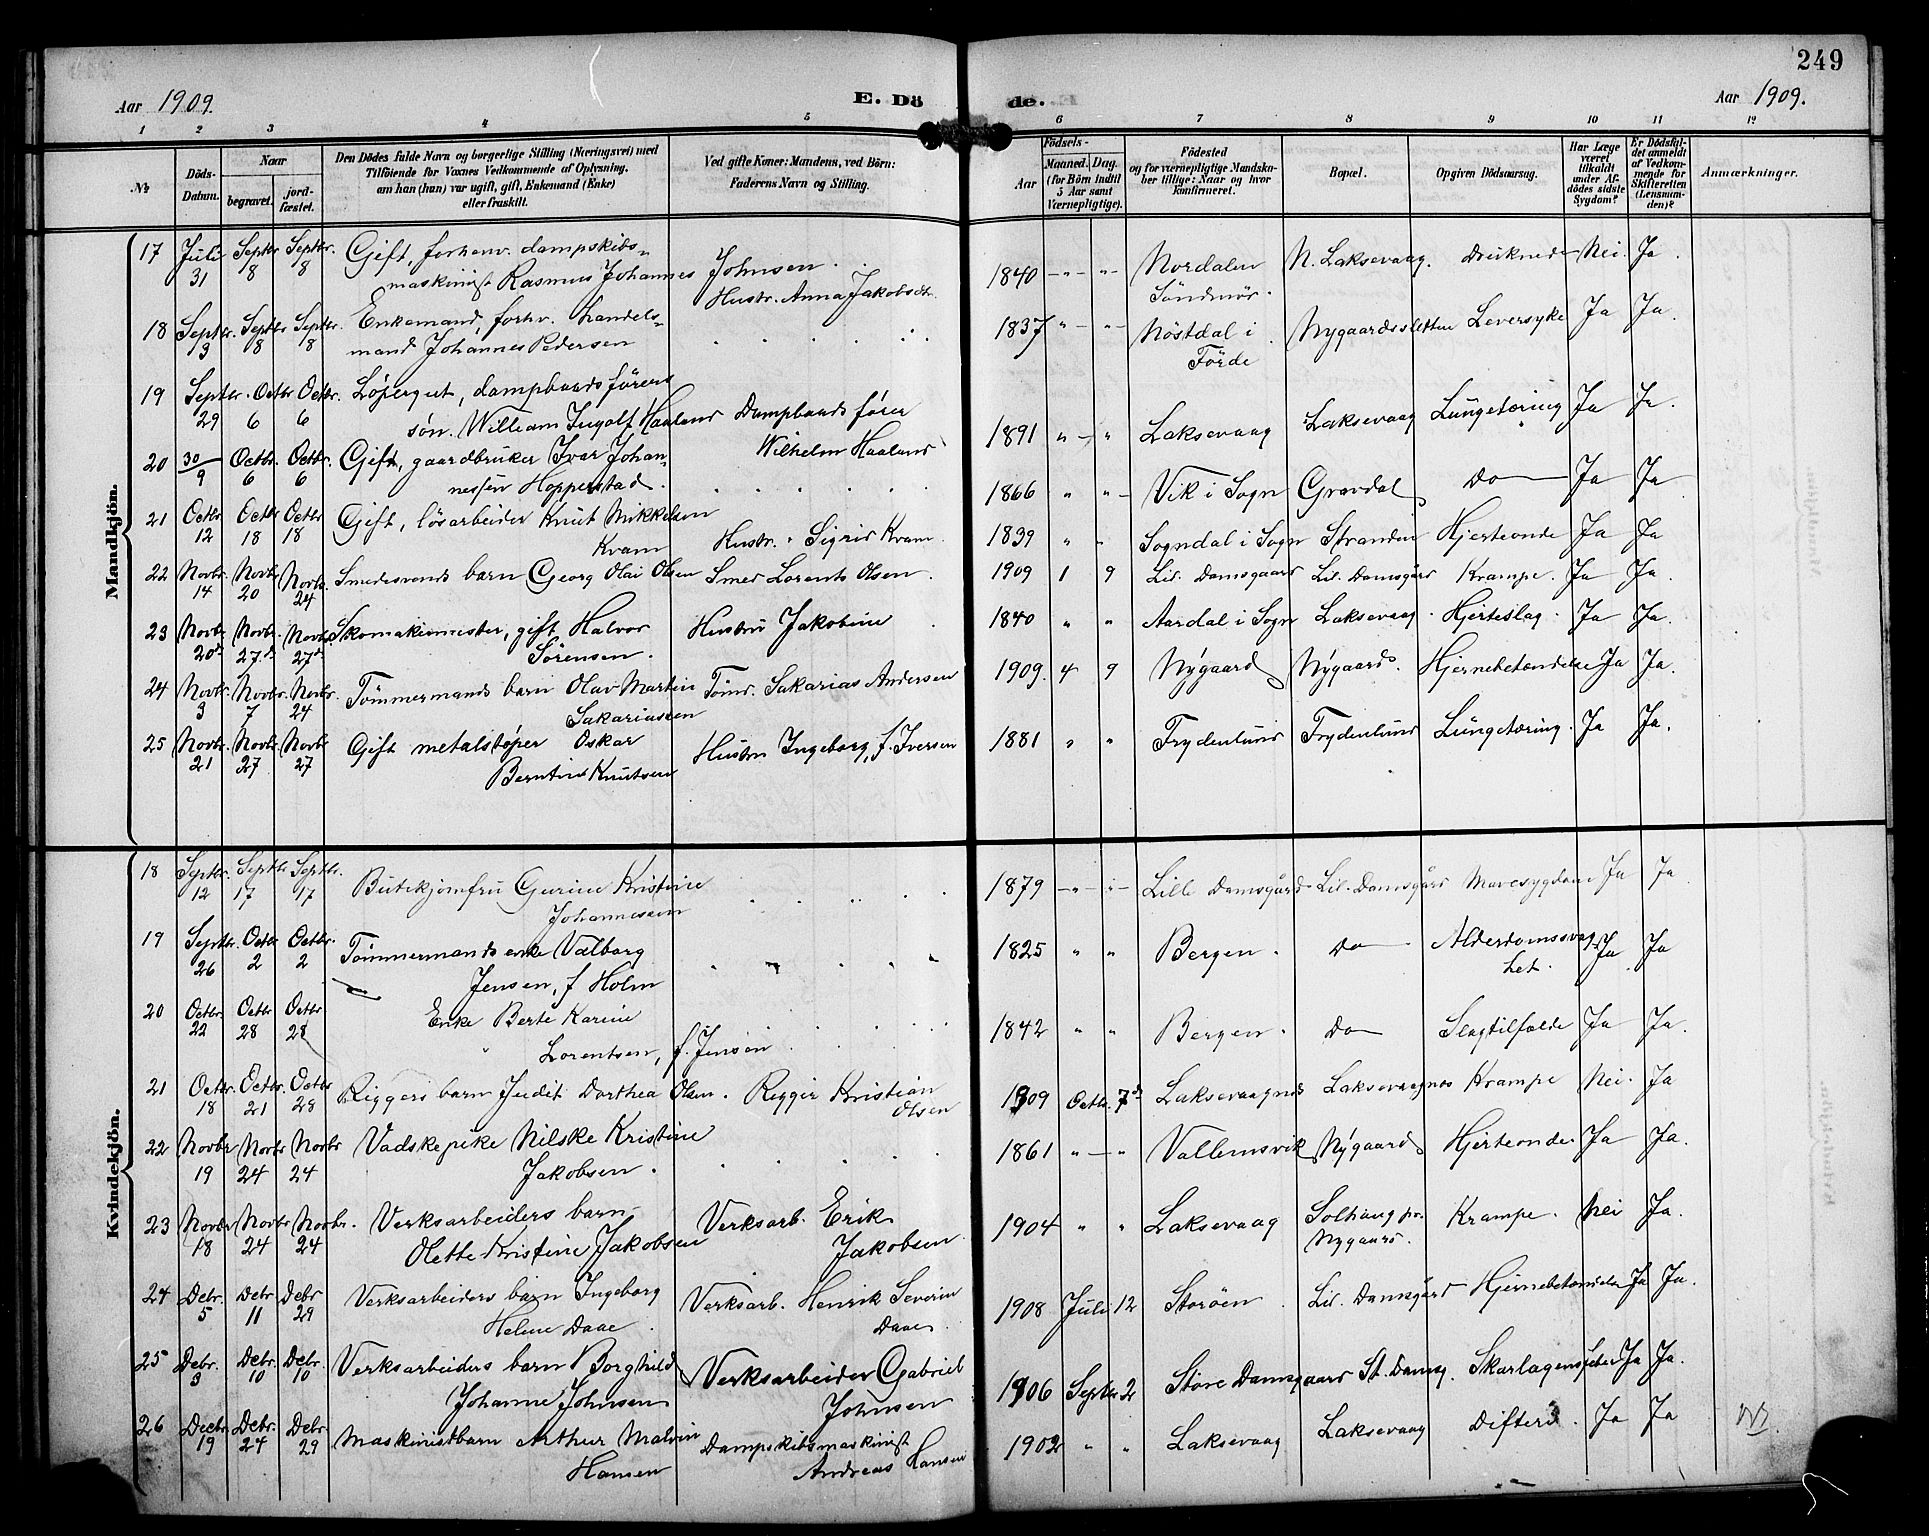 249
Aar 1909. E. Dö de. Aar 1909.
1 2 3 4 5 6 7 8 9 10 11 12
№
Döds-Datum.
Naar
begravet.
jord-fæstet.
Den Dödes fulde Navn og borgerlige Stilling (Næringsvei) med
Tilföiende for Voxnes Vedkommende af Oplysning,
om han (hun) var ugift, gift, Enkemand (Enke)
eller fraskilt.
Ved gifte Koner: Mandens, ved Börn:
Faderens Navn og Stilling.
Födsels-
Aar
Maaned. Dag.
(for Börn indtil
5 Aar samt
Værnepligtige).
Födested
og for værnepligtige Mandska-
ber tillige: Naar og hvor
konfirmeret.
Bopæl.
Opgiven Dödsaarsag.
Har Læge
været
tilkaldt
under Af-
dödes sidste
Sygdom?
Er Dödsfal-
det anmeldt
af Vedkom-
mende for
Skifteretten
(Lensman-
den)?
Anmærkninger.
Mandkjön.
17 Juli Septbr Septbr. Gift, forhenv. dampskibs-
31 8 8 maskinist Rasmus Johannes Johnsen.
Hustr. Anna Jakobsdtr.
1840 – " – " – Nordalen N. Laksevaag. Druknede Nei. Ja.
Söndmör.
18 Septbr. Septbr Septbr. Enkemand, forhv. handels-
3 8 8 mand Johannes Pedersen
1837 " – " – Nöstdal i Nygaardssletten Leversyke Ja Ja.
Förde
19 Septbr. Octbr Octbr. Löpergut, dampbaadsförers
29 6 6 sön. William Ingolf Haaland Dampbaadsförer
Wilhelm Haaland
1891 " – " Laksevaag Laksevaag Lungetæring Ja Ja.
20 30/9 Octbr. Octbr. Gift, gaardbruker Ivar Johan-
6 6 nessen Hopperstad.
1866 " " – Vik i Sogn Gravdal Do Ja Ja
21 Octbr Octbr Octbr Gift, lösarbeider Knut Mikkelsen
12 18 18 Kvam Hustr. Sigrid Kvam.
1839 " " Sogndal i Sogn Stranden Hjerteonde Ja Ja
22 Novbr. Novbr. Novbr. Smedesvends barn Georg Olai Olsen Smed Lorents Olsen.
14 20 24
1909 1 9 Lil. Damsgaard Lil. Damsgård Krampe. Ja Ja.
23 Novbr. Novbr. Novbr. Skomakermester, gift Halvor Hustru Jakobine
20de 27de 27de Sörensen.
1840 " " Aardal i Sogn Laksevaag. Hjerteslag. Ja Ja.
24 Novbr. Novbr. Novbr. Tömmermands barn Olav Martin Tömr. Sakarias Andersen
3 7 24 Sakariassen
1909. 4 9 Nygaard Nygaard. Hjernebetændelse Ja Ja.
25 Novbr. Novbr. Novbr Gift metalstöper Oskar Hustru Ingeborg, f. Iversen
21 27 27 Berntin Knutsen
1881 " " Frydenlund Frydenlund Lungetæring. Ja Ja.
Kvindekjön.
18 Septbr. Septbr Septbr. Butikjomfru Gurine Kristine
12 17 17 Johannessen
1879 – " – " – Lille Damsgård Lil. Damsgård Mavesygdom Ja Ja
19 Septbr. Octbr Octbr. Tömmermands enke Valborg
26 2 2 Jensen, f Holm
1825 " " Bergen. Do Alderdomssvag-
het. Ja Ja
20 Octbr. Octbr Octbr Enke Berte Karine
22 28 28 Lorentsen, f. Jensen
1842 " " Bergen. Do Slagtilfælde Ja Ja.
21 Octbr. Octbr. Octbr Riggers barn Judit Dorthea Olsen. Rigger Kristian
18 21 28 Olsen
1909 Octbr. 7de Laksevaagnes Laksevaagnes Krampe Nei. Ja
22 Novbr Novbr Novbr Vadskepike Nilske Kristine
19 24 24 Jakobsen.
1861 " – " Vallemsvik Nygaard Hjerteonde. Ja Ja.
23 Novbr Novbr Novbr. Verksarbeiders barn Verksarb. Erik
18 24 24 Olette Kristine Jakobsen Jakobsen
1904 " " Laksevaag Solhaug pr. Krampe. Nei Ja.
Nygaard.
24 Debr. Debr Debr Verksarbeiders barn Ingeborg Verksarb. Henrik Severin
5 11 29 Helene Daae. Daae.
1908 Juli 12 Storöen Lil. Damsgård Hjernebetændelse Ja Ja.
25 Debr. Debr. Debr. Verksarbeiders barn Borghild Verksarbeider Gabriel
3 10 10 Johanne Johnsen Johnsen
1906 Septbr 2 Store Damsgaard St. Damsg. Skarlagensfeber Ja Ja.
26 Decbr. Debr. Debr Maskinistbarn Arthur Malvin Dampskibsmaskinist
19 24 29 Hansen Andreas Hansen
1902 " " Laksevaag Laksevaag Difteri. Ja Ja